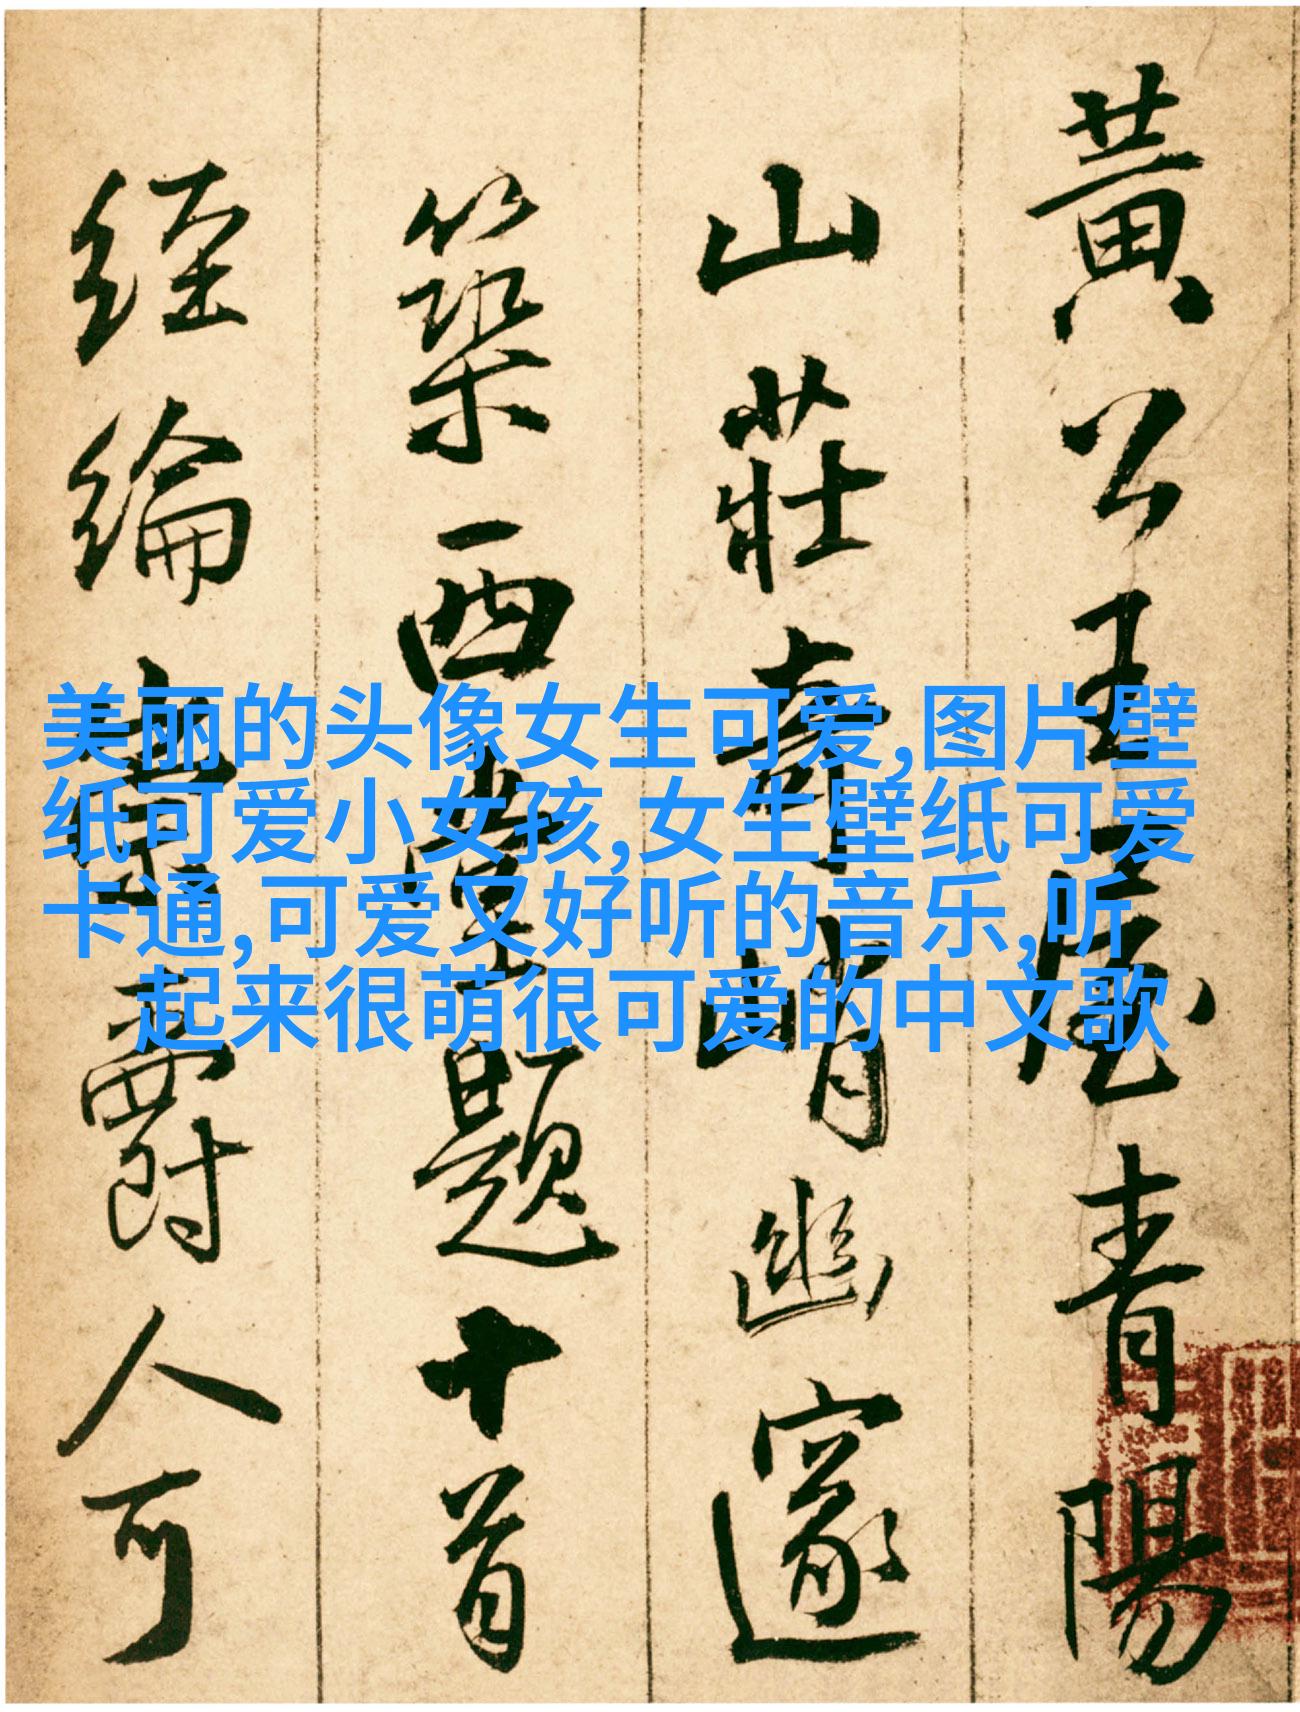 黃公王屋青陽
山莊奇峭幽邃
築西堂題十首
经綸高爵人可
美丽的头像女生可爱,图片壁
纸可爱小女孩,女生壁纸可爱
卡通,可爱又好听的音乐,听
起来很萌很可爱的中文歌